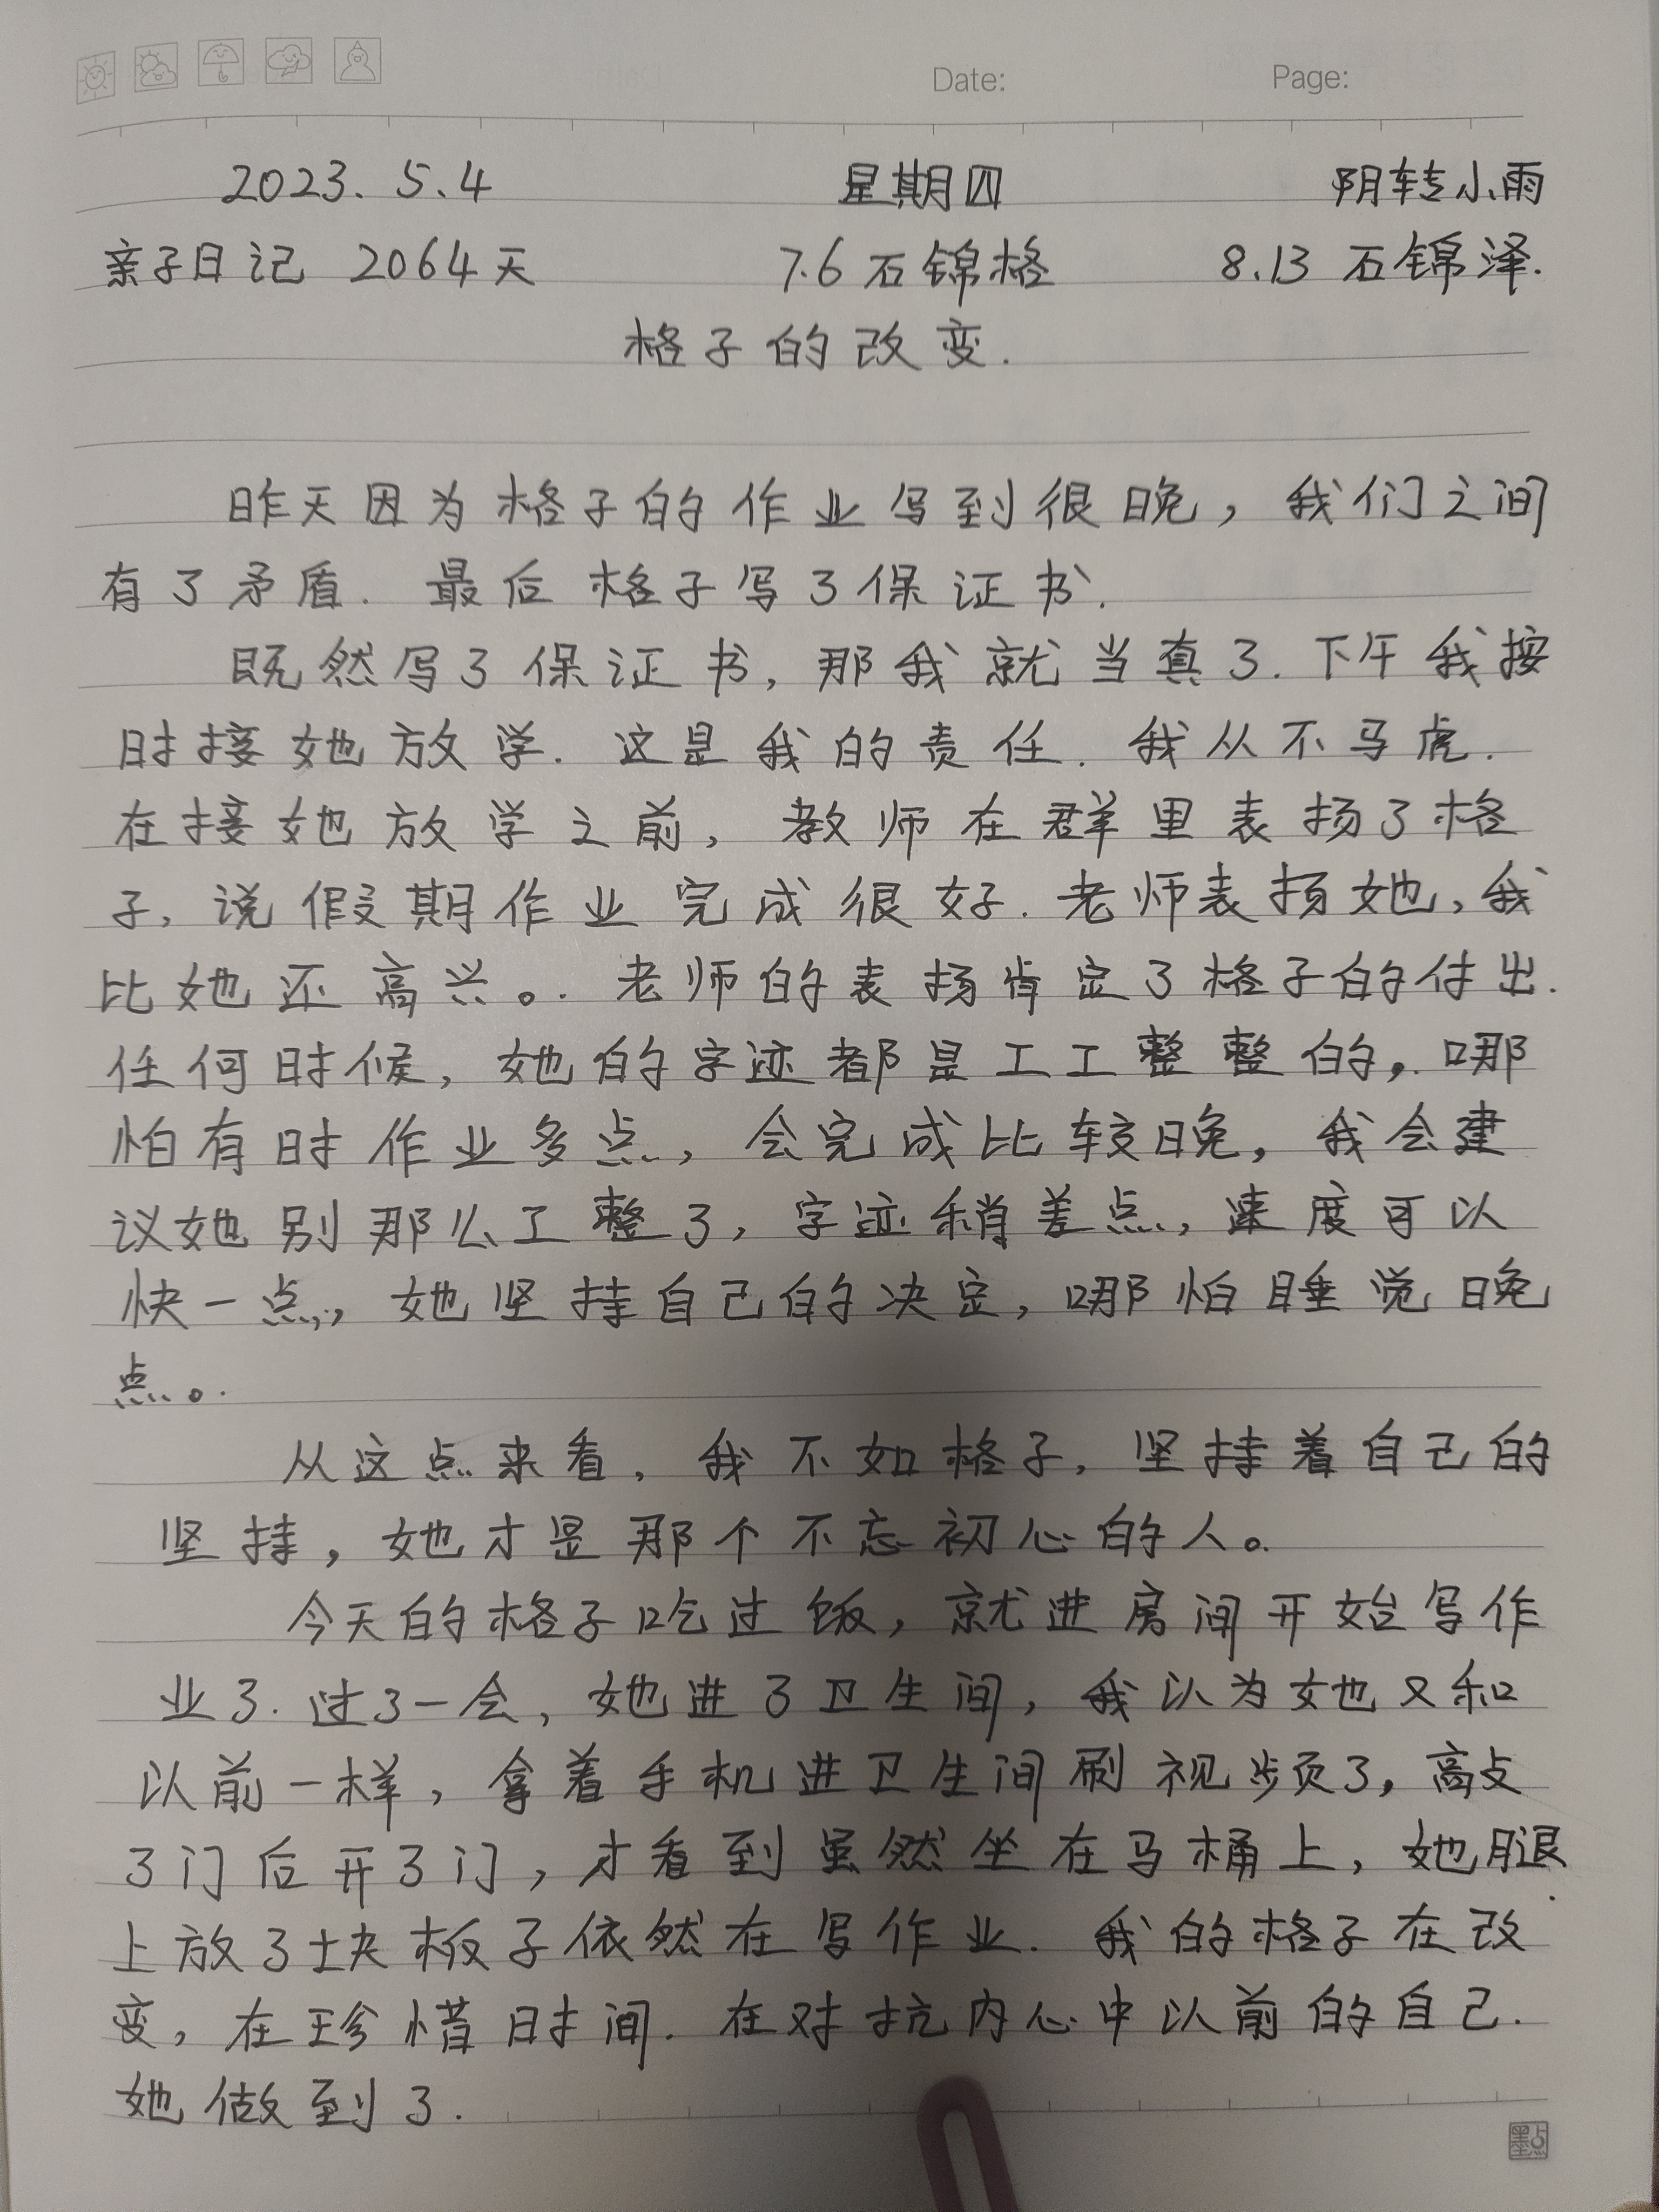 Date: Page:
2023. 5.4 星期四 阴转小雨
亲子日记 2064天 7.6石锦格 8.13 石锦泽.
格子的改变.
昨天因为格子的作业写到很晚，我们之间
有了矛盾. 最后格子写了保证书.
既然写了保证书，那我就当真了. 下午我按
时接她放学. 这是我的责任. 我从不马虎.
在接她放学之前，教师在群里表扬了格
子，说假期作业完成很好. 老师表扬她，我
比她还高兴。. 老师的表扬肯定了格子的付出.
任何时候，她的字迹都是工工整整的，. 哪
怕有时作业多点，会完成比较晚，我会建
议她别那么工整了，字迹稍差点，速度可以
快一点，，她坚持自己的决定，哪怕睡觉晚
点。.
从这点来看，我不如格子，坚持着自己的
坚持，她才是那个不忘初心的人。
今天的格子吃过饭，就进房间开始写作
业了. 过了一会，她进了卫生间，我以为她又和
以前一样，拿着手机进卫生间刷视频了，敲
了门后开了门，才看到虽然坐在马桶上，她腿
上放了块板子依然在写作业. 我的格子在改
变，在珍惜时间. 在对抗内心中以前的自己.
她做到了.
墨点